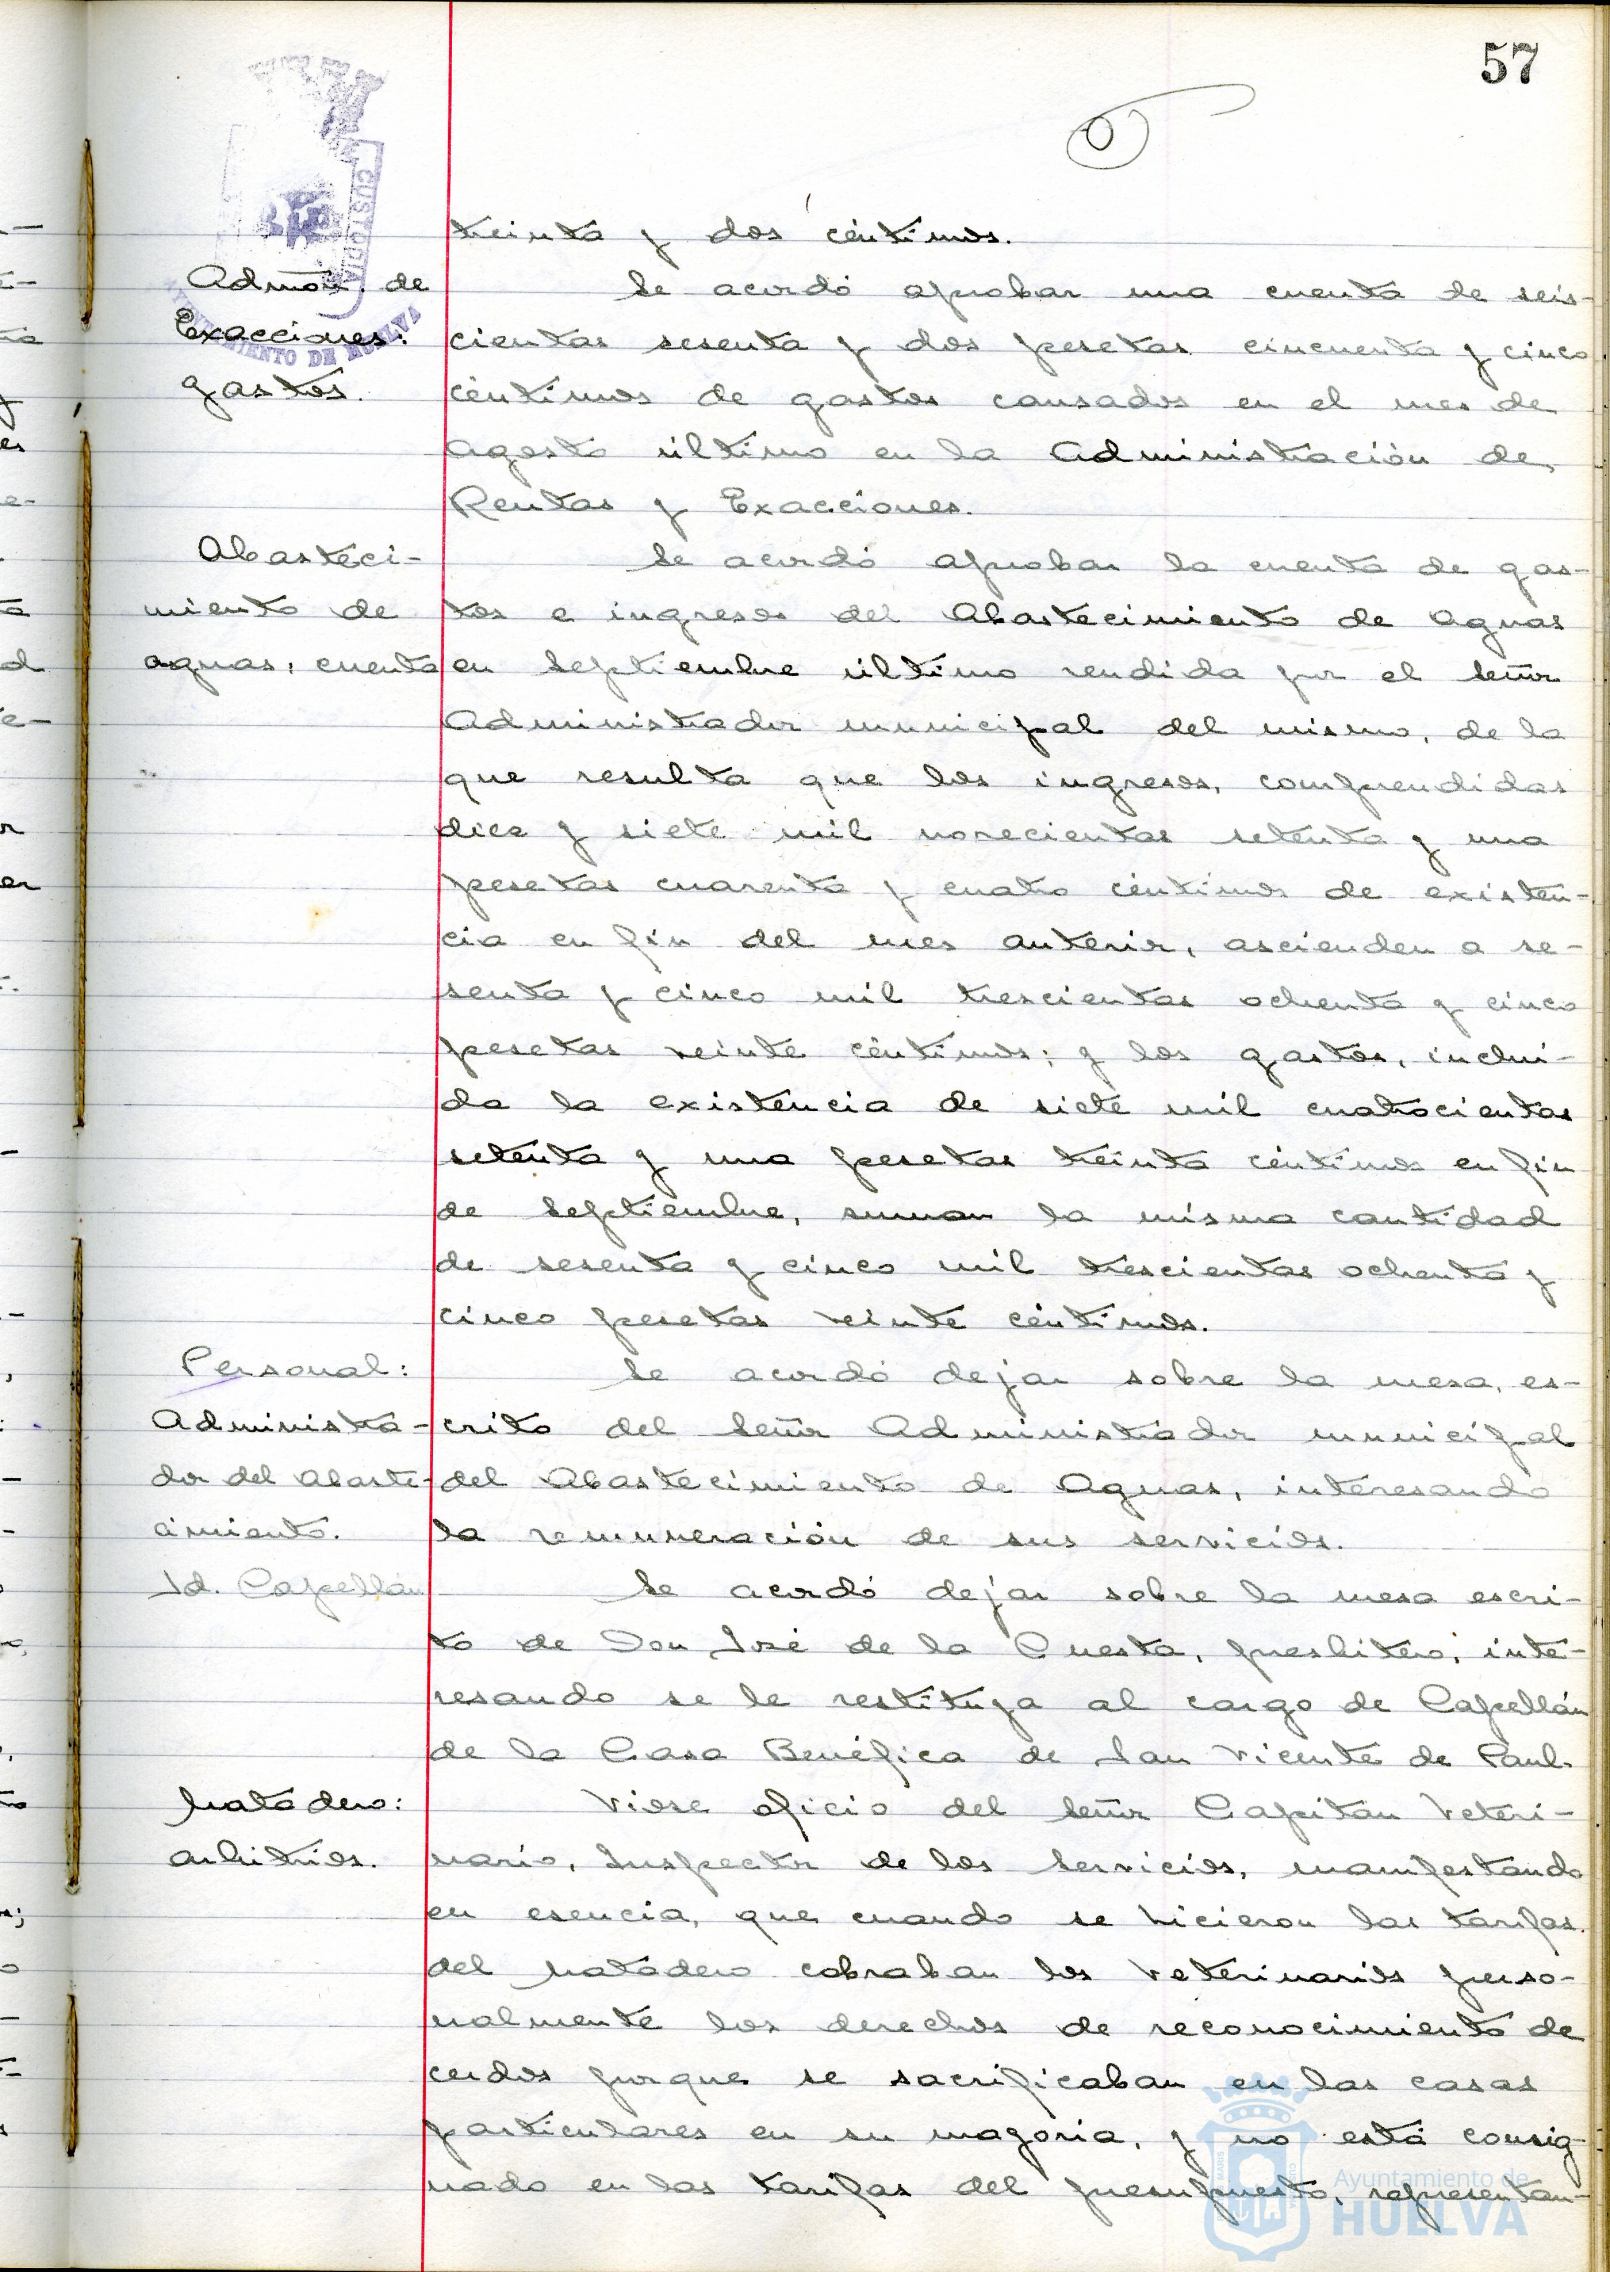 57
treinta y dos céntimos.
Admón. de
Exacciones:
gastos.
Se acordó aprobar una cuenta de seis-
cientas sesenta y dos pesetas cincuenta y cinco
céntimos de gastos causados en el mes de
Agosto último en la Administración de
Rentas y Exacciones.
Abasteci-
miento de
aguas: cuenta
Se acordó aprobar la cuenta de gas-
tos e ingresos del Abastecimiento de Aguas
en Septiembre último rendida por el Señor
Administrador municipal del mismo, de la
que resulta que los ingresos, comprendidas
diez y siete mil novecientas setenta y una
pesetas cuarenta y cuatro céntimos de existen-
cia en fin del mes anterior, ascienden a se-
senta y cinco mil trescientas ochenta y cinco
pesetas veinte céntimos; y los gastos, inclui-
da la existencia de siete mil cuatrocientas
setenta y una pesetas treinta céntimos en fin
de Septiembre, suman la misma cantidad
de sesenta y cinco mil trescientas ochenta y
cinco pesetas veinte céntimos.
Personal:
Administra-
dor del Abaste-
cimiento.
Se acordó dejar sobre la mesa, es-
crito del Señor Administrador municipal
del Abastecimiento de Aguas, interesando
la remuneración de sus servicios.
Id. Capellán
Se acordó dejar sobre la mesa escri-
to de Don José de la Cuesta, presbítero, inte-
resando se le restituya al cargo de Capellán
de la Casa Benéfica de San Vicente de Paul.
Matadero:
arbitrios.
Viose oficio del Señor Capitán Veteri-
nario, Inspector de los Servicios, manifestando
en esencia, que cuando se hicieron las tarifas
del Matadero cobraban los Veterinarios perso-
nalmente los derechos de reconocimiento de
cerdos porque se sacrificaban en las casas
particulares en su mayoría, y no está consig-
nado en las tarifas del presupuesto, representan-
CUSTODIA
AYUNTAMIENTO DE HUELVA
Ayuntamiento de
HUELVA